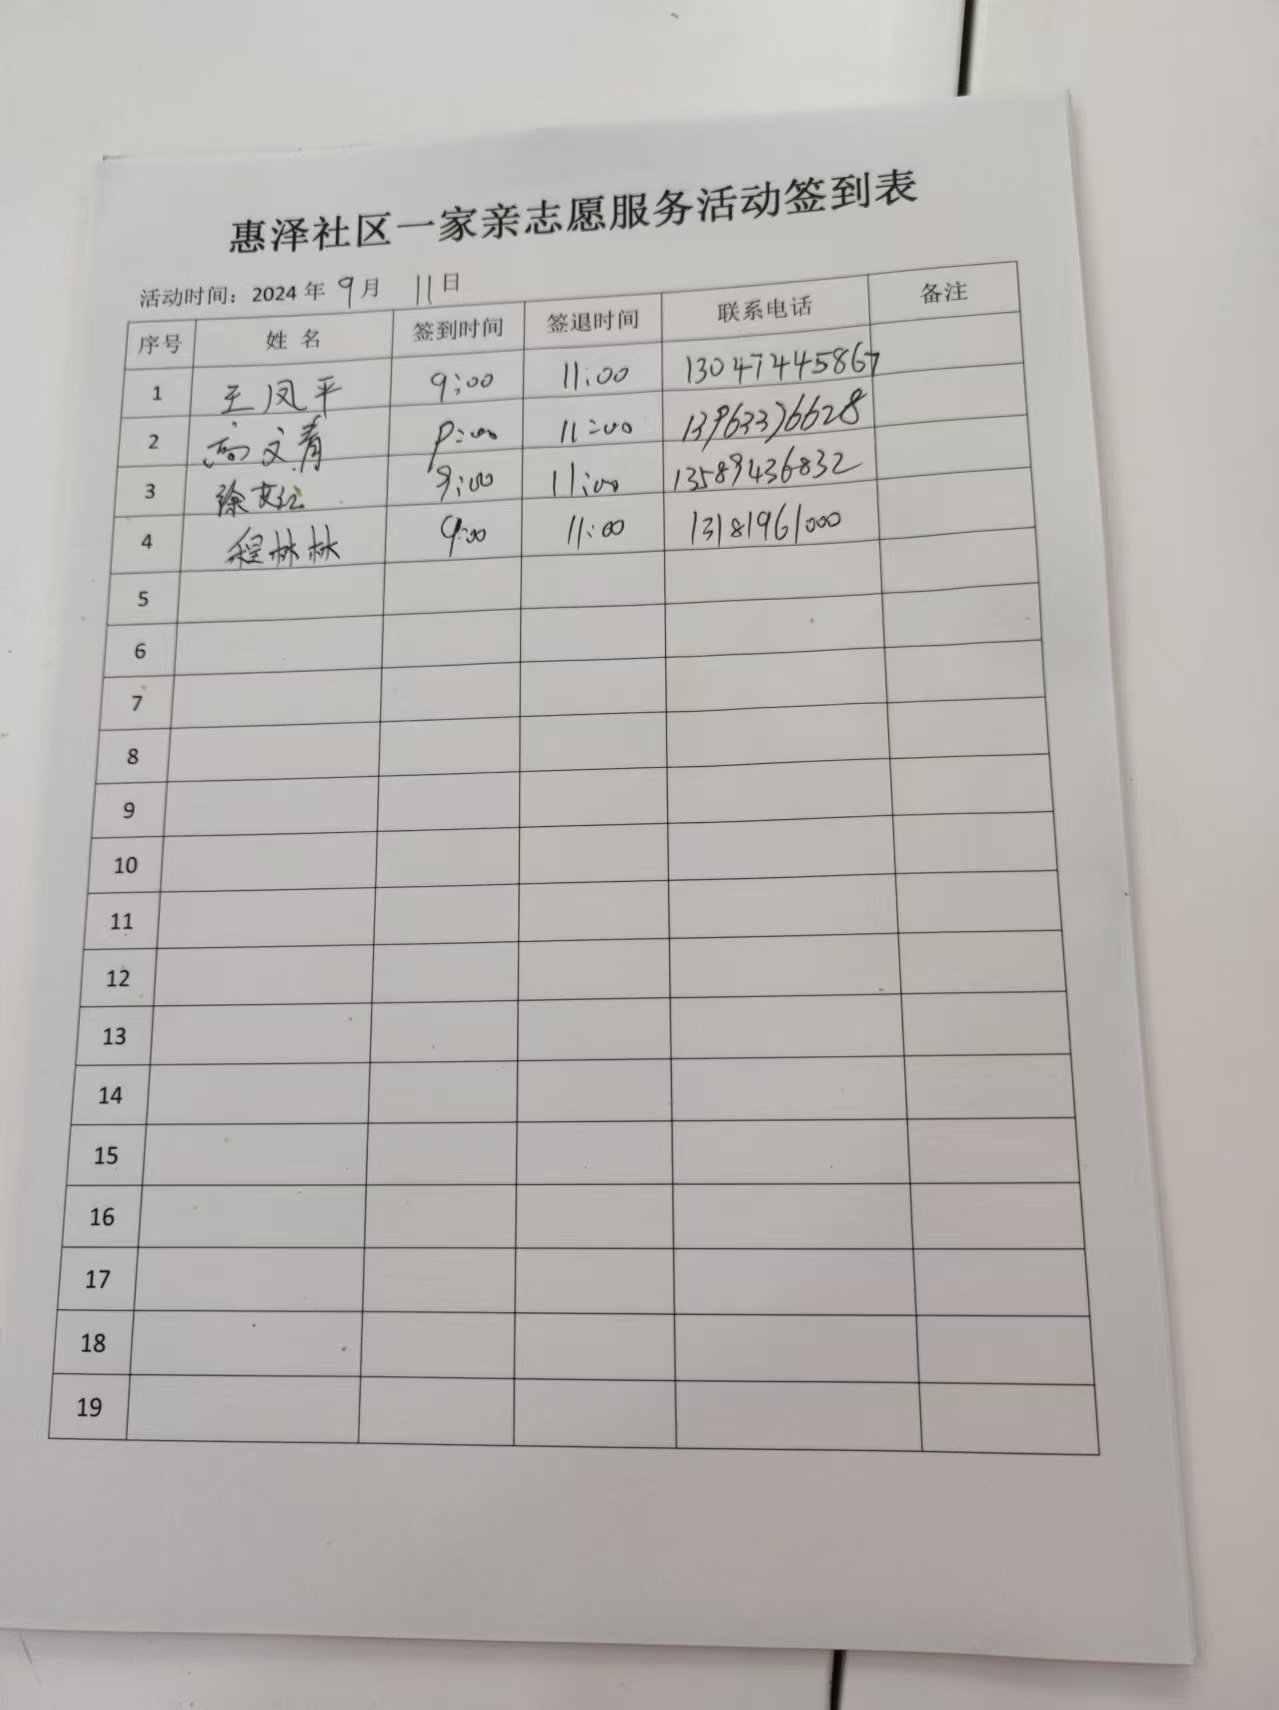 惠泽社区一家亲志愿服务活动签到表
活动时间：2024 年 9月 11日
序号 姓 名 签到时间 签退时间 联系电话 备注
1 王凤平 9:00 11:00 13047445867
2 高文青 9:00 11:00 13963376628
3 徐 9:00 11:00 13589436832
4 程林林 9:00 11:00 13181961000
5
6
7
8
9
10
11
12
13
14
15
16
17
18
19